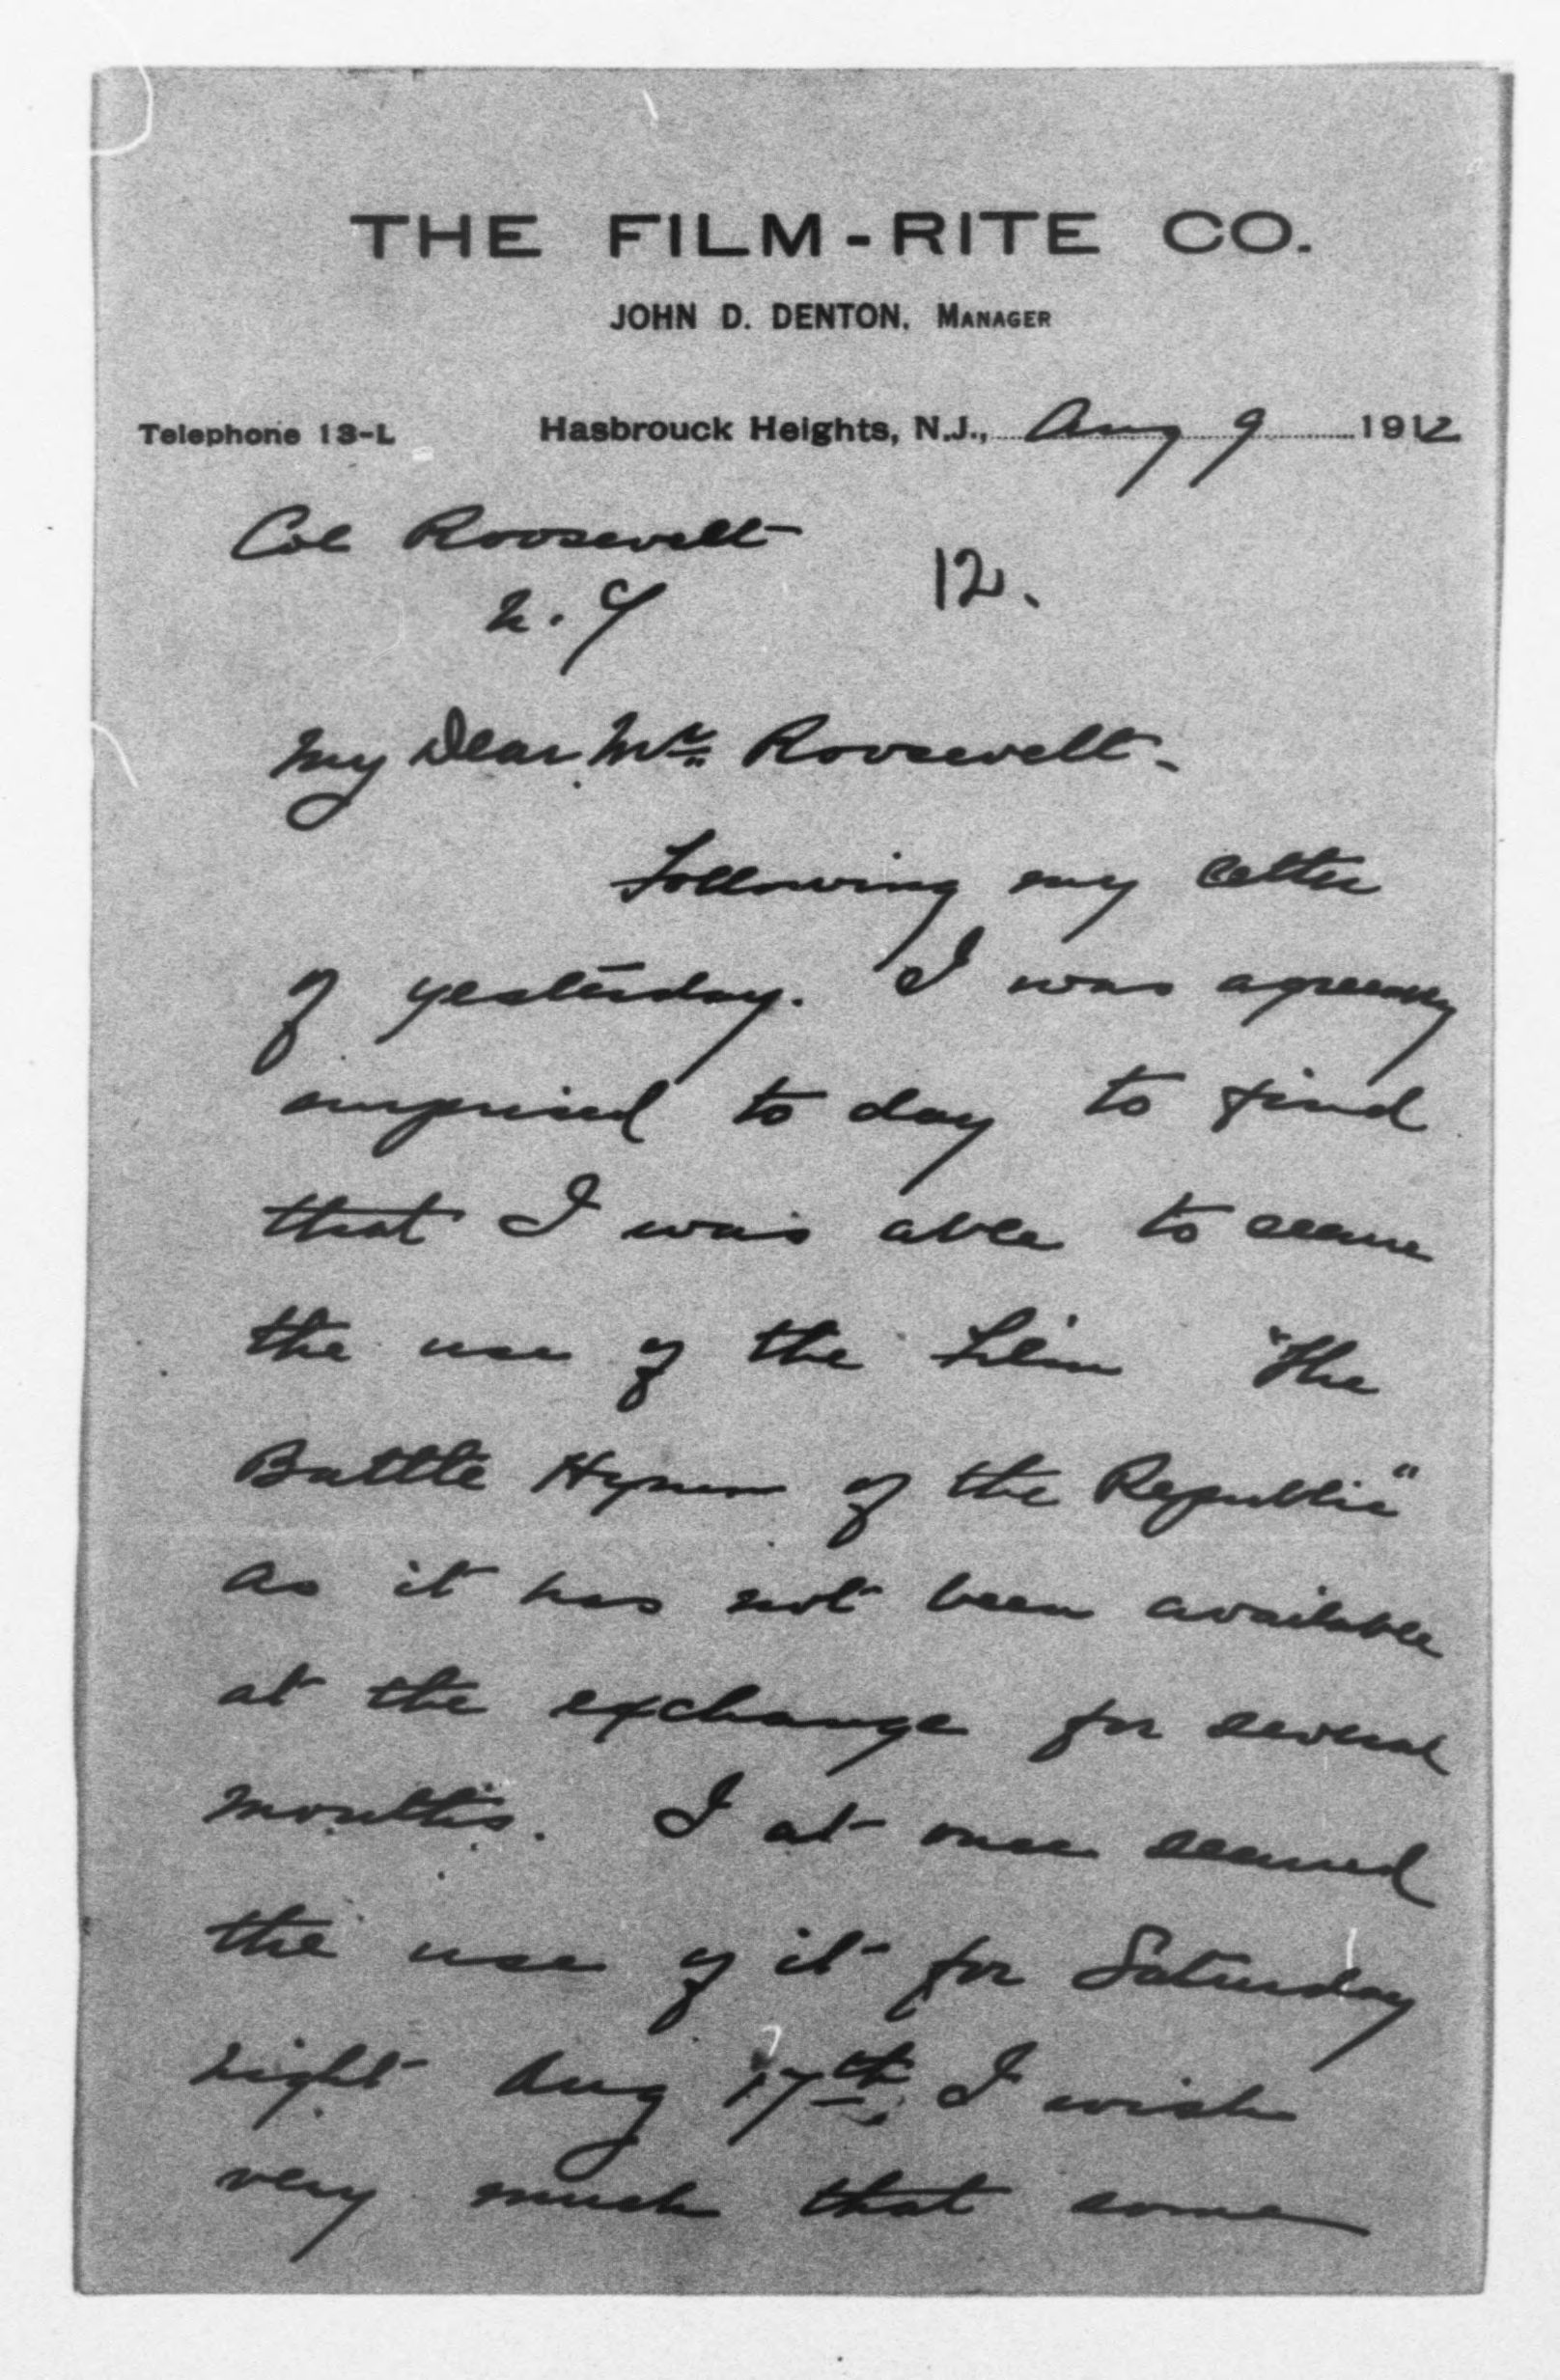 THE FILM-RITE CO.
JOHN D. DENTON, MANAGER
Telephone 13-L Hasbrouck Heights, N.J., Aug 9 1912
Col Roosevelt
N.Y 12.
My Dear Mr. Roosevelt-
Following my letter
of yesterday. I was agreeably
surprised to day to find
that I was able to secure
the use of the Film "The
Battle Hymn of the Republic"
as it has not been available
at the exchange for several
months. I at once secured
the use of it for Saturday
night Aug 17th, I wish
very much that some